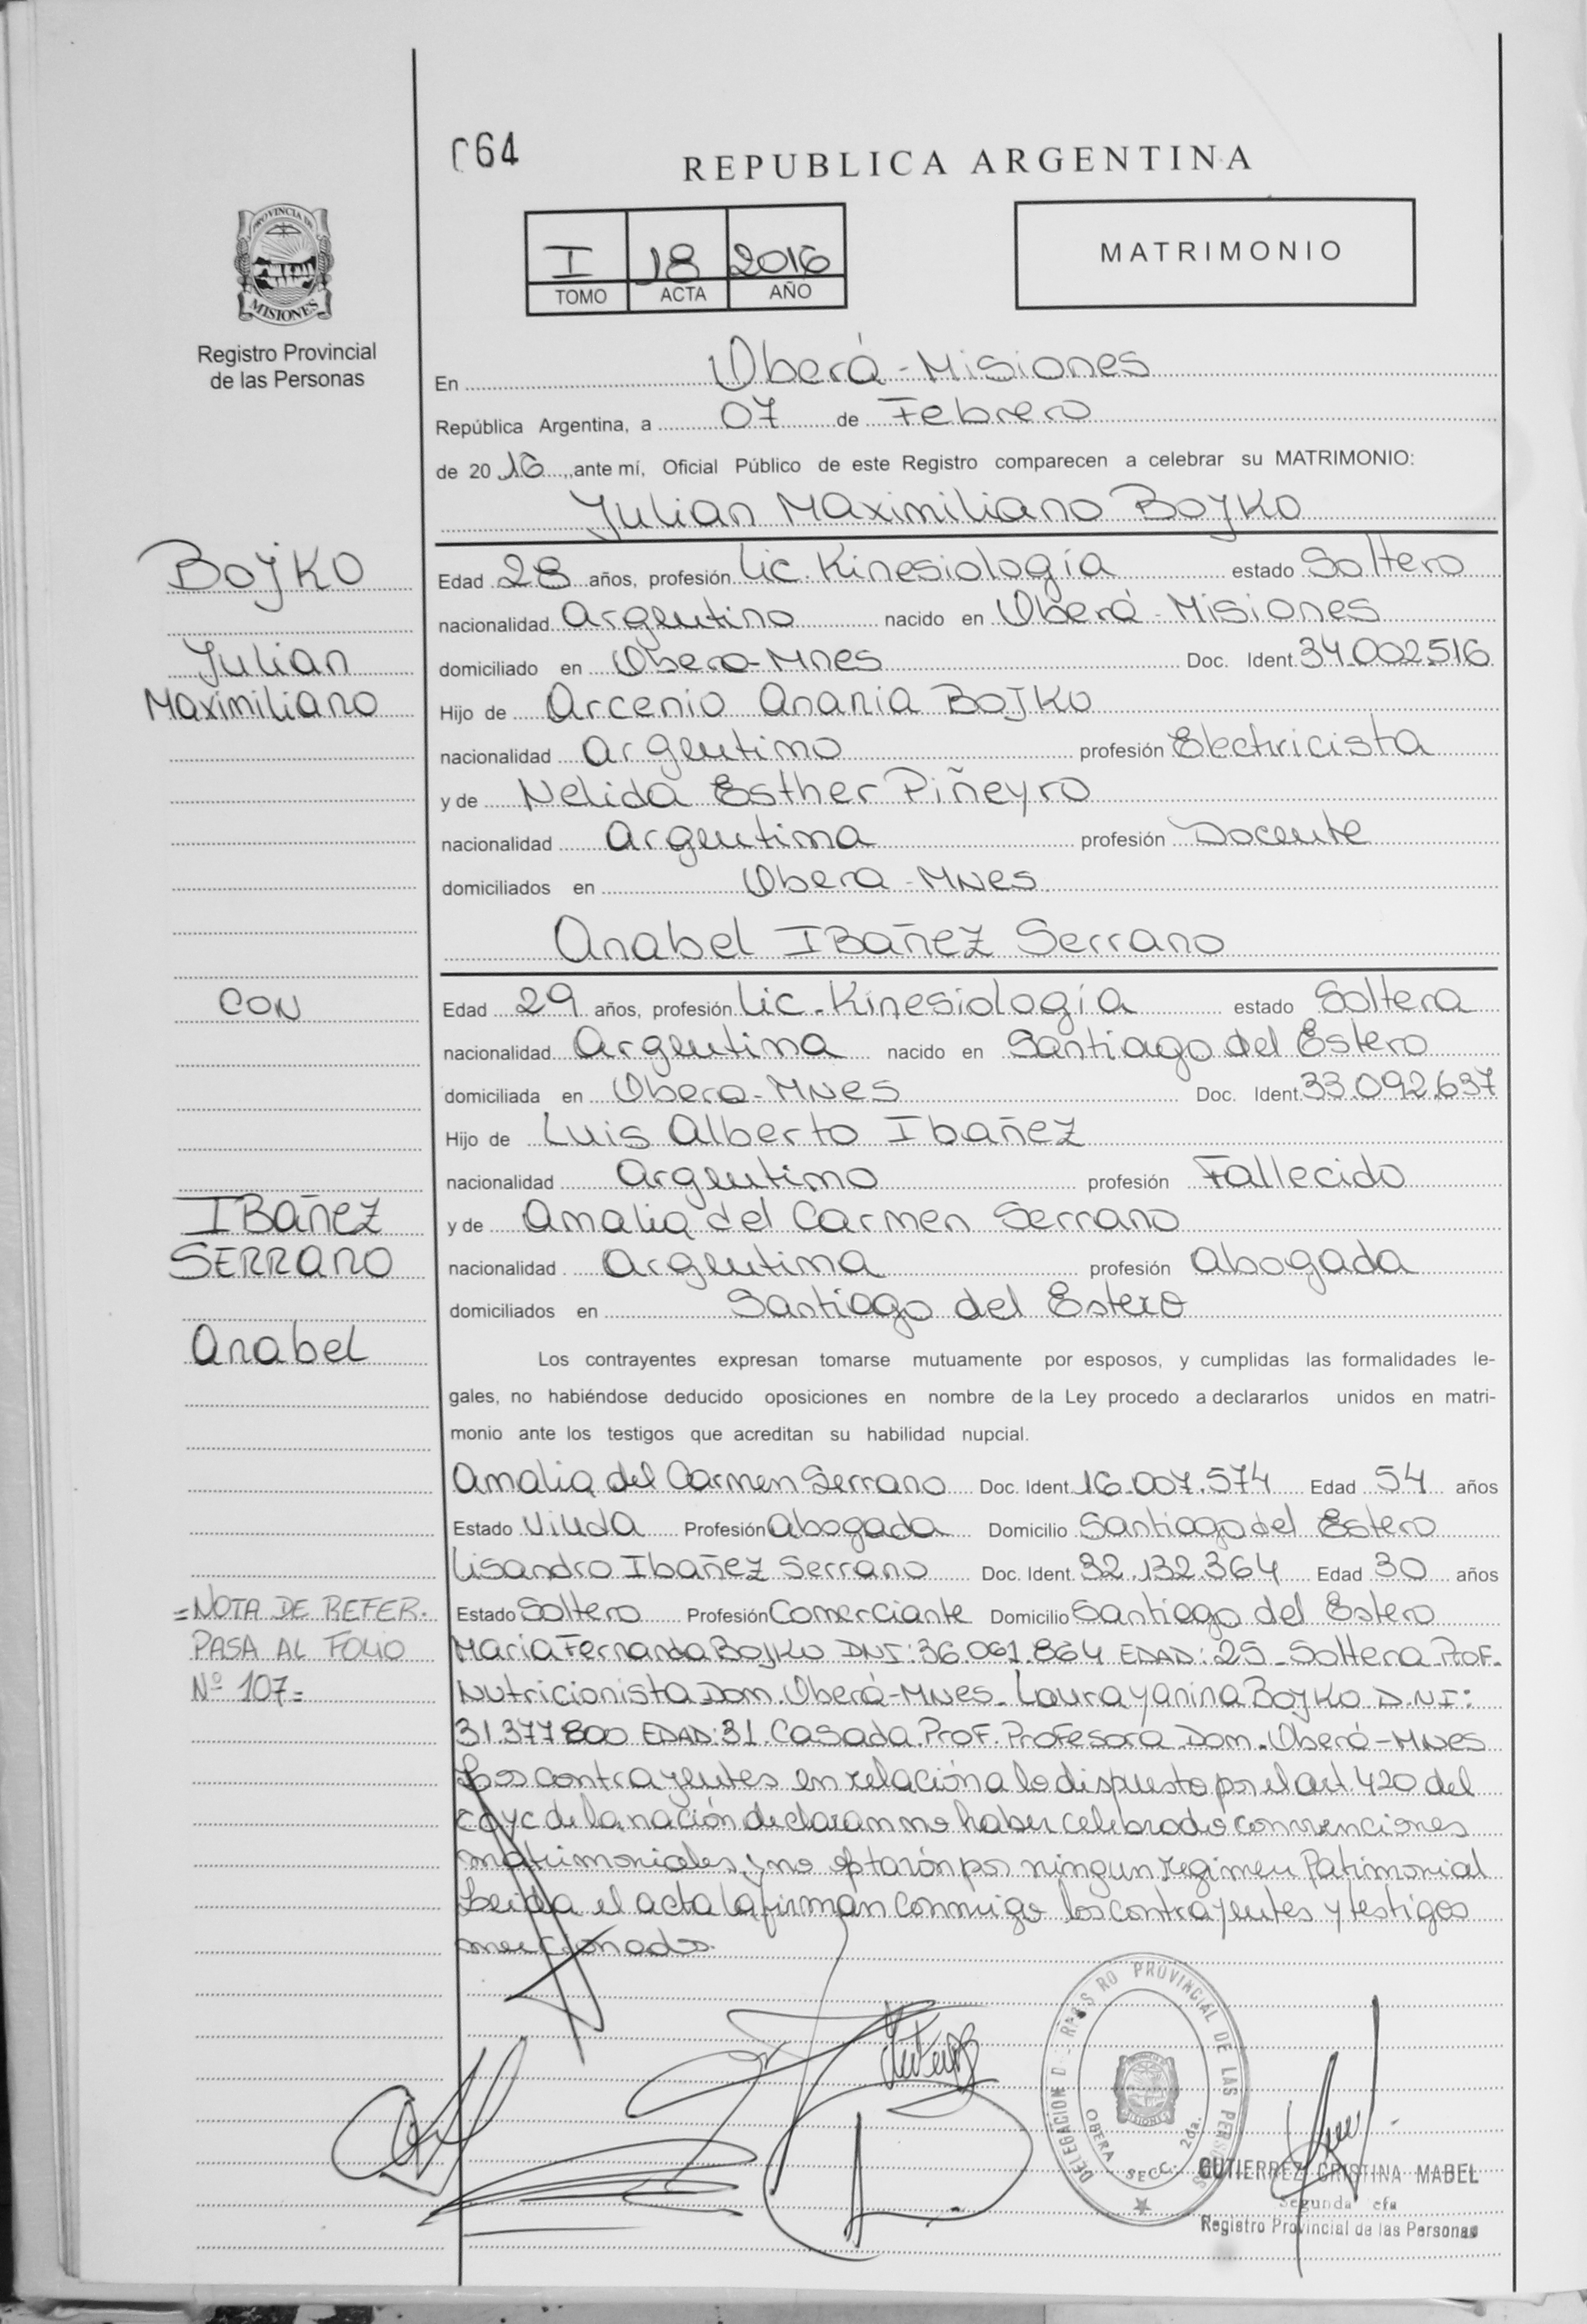 064
REPUBLICA ARGENTINA
PROVINCIA DE
MISIONES
Registro Provincial
de las Personas
I 18 2016
TOMO ACTA AÑO
MATRIMONIO
En Oberá - Misiones
República Argentina, a 07 de Febrero
de 20 16, ante mí, Oficial Público de este Registro comparecen a celebrar su MATRIMONIO:
Julian Maximiliano Bojko
Bojko
Julian
Maximiliano
Edad 28 años, profesión Lic. Kinesiología estado Soltero
nacionalidad Argentino nacido en Oberá - Misiones
domiciliado en Obera - Mnes Doc. Ident. 34.002.516
Hijo de Arcenio Anania Bojko
nacionalidad Argentino profesión Electricista
y de Nelida Esther Piñeyro
nacionalidad Argentina profesión Docente
domiciliados en Obera - Mnes
Anabel Ibañez Serrano
CON
Edad 29 años, profesión Lic. Kinesiología estado Soltera
nacionalidad Argentina nacido en Santiago del Estero
domiciliada en Obera - Mnes Doc. Ident. 33.092.637
Hijo de Luis Alberto Ibañez
nacionalidad Argentino profesión Fallecido
IBañez
SERRANO
Anabel
y de Amalia del Carmen Serrano
nacionalidad Argentina profesión Abogada
domiciliados en Santiago del Estero
Los contrayentes expresan tomarse mutuamente por esposos, y cumplidas las formalidades le-
gales, no habiéndose deducido oposiciones en nombre de la Ley procedo a declararlos unidos en matri-
monio ante los testigos que acreditan su habilidad nupcial.
Amalia del Carmen Serrano Doc. Ident. 16.007.574 Edad 54 años
Estado Viuda Profesión Abogada Domicilio Santiago del Estero
Lisandro Ibañez Serrano Doc. Ident. 32.132.364 Edad 30 años
Estado Soltero Profesión Comerciante Domicilio Santiago del Estero
=NOTA DE REFER.
PASA AL FOLIO
Nº 107=
Maria Fernanda Bojko DNI: 36.061.864 EDAD: 25 - Soltera Prof.
Nutricionista Dom. Oberá - Mnes. Laura Yanina Bojko D.N.I:
31.377.800 EDAD: 31. Casada. Prof. Profesora Dom. Oberá - Mnes
Los contrayentes en relación a lo dispuesto por el art. 420 del
ccyc de la nación declaran no haber celebrado convenciones
matrimoniales y no optarón por ningun regimen Patrimonial
Leida el acta la firman conmigo los contrayentes y testigos
mencionados.
DELEGACION REGISTRO PROVINCIAL DE LAS PERSONAS
OBERA SECC. 2da.
GUTIERREZ CRISTINA MABEL
Segunda Jefa
Registro Provincial de las Personas